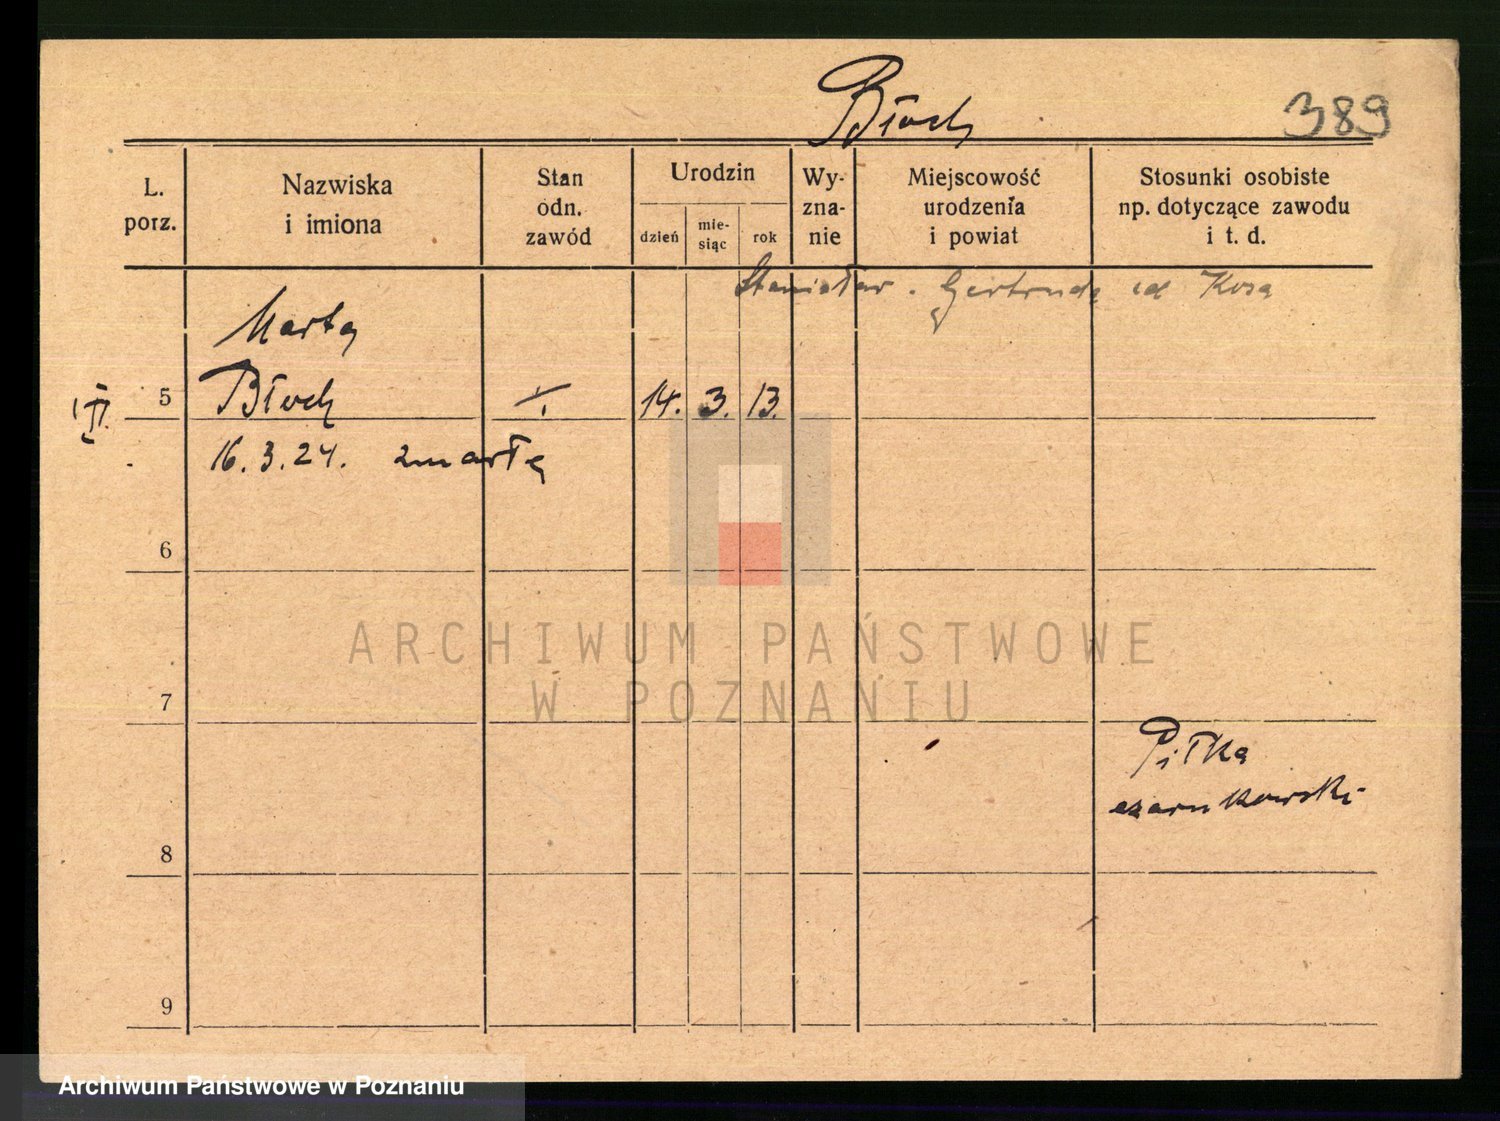 Błoch
389
L. porz.
Nazwiska i imiona
Stan odn. zawód
Urodzin
dzień
mie-
siąc
rok
Wy-
zna-
nie
Miejscowość urodzenia i powiat
Stosunki osobiste np. dotyczące zawodu i t. d.
Stanisław. Gertruda
Marta
Błoch
5
14. 3. 13.
16.3.24. zmarła
6
ARCHIWUM PAŃSTWOWE
W POZNANIU
7
Piłka
czarnkowski
8
9
Archiwum Państwowe w Poznaniu